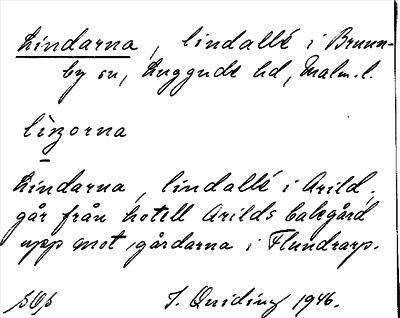 Lindarna, lindallé i Brunn-
by sn, Luggude hd, Malm. l.
lìzorna
Lindarna, lindallé i Arild,
går från hotell Arilds bakgård
upp mot gårdarna i Flundrarp.
S. Quiding 1946.